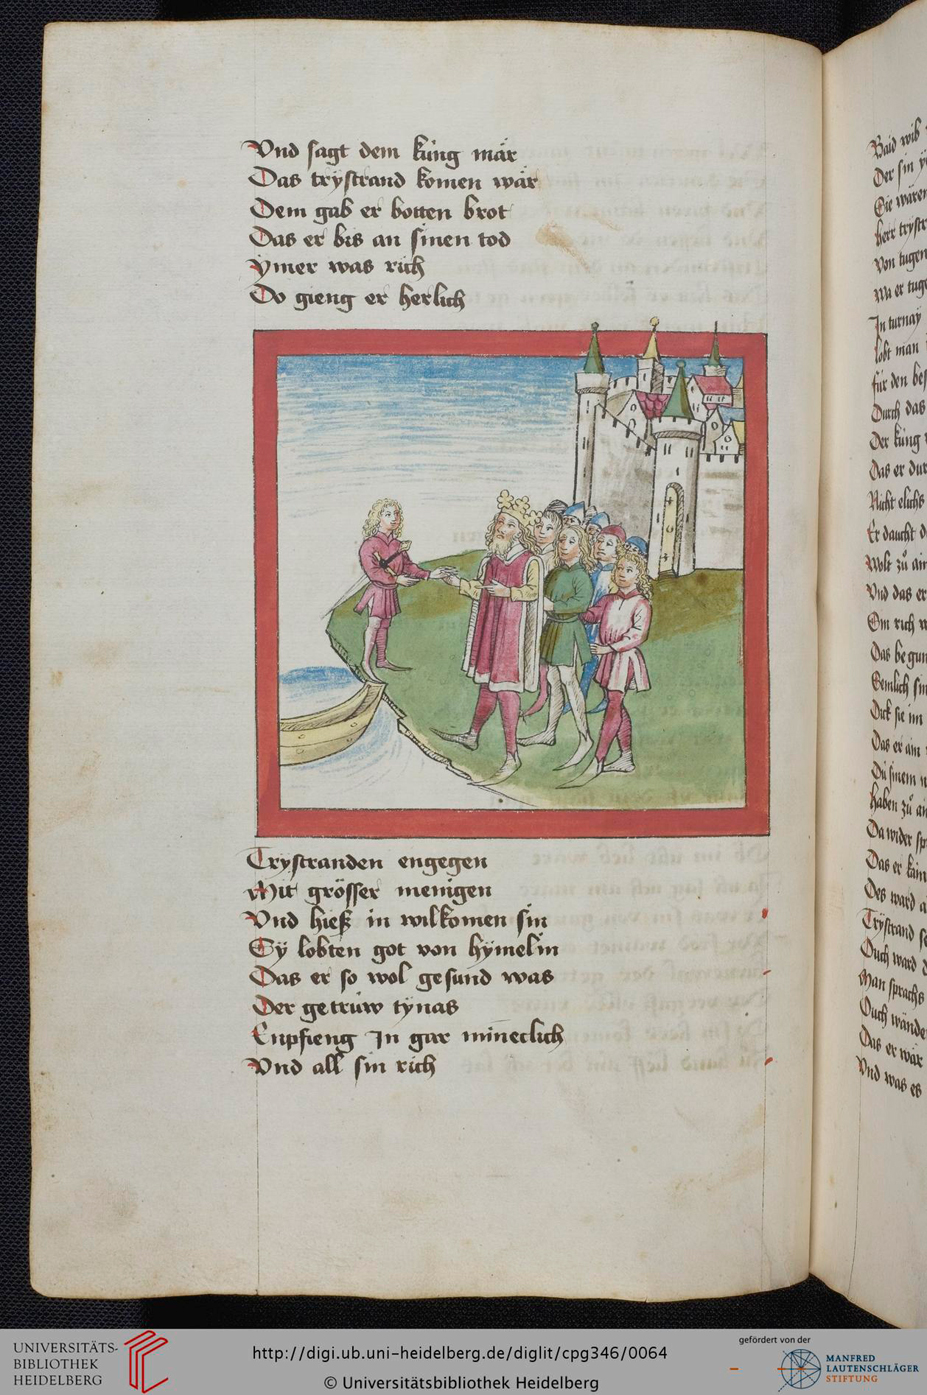 Vnd sagt dem küng mär
Das trÿstrand komen wär
Dem gab er botten brot
Das er bis an sinen tod
Ÿmer was rich
Do gieng er herlich
Trÿstranden engegen
Mit grösser menigen
Vnd hieß in wilkomen sin
Sÿ lobten got von hÿmelin
Das er so wol gesund was
Der getrüw tÿnas
Enpfieng In gar mineclich
Vnd all sin rich
Baid wib
Der sin
Sie waren
herr trÿstr
Von tugen
Wa er tuge
In turnaÿ
lobt man
für den bes
Durch das
Der küng
Das er dur
Nicht elichs
Er daucht d
Wolt zů ain
Vnd das er
Om rich w
Das be gun
Semlich sin
Dick sie im
Das er ain
Du sinem n
haben zů an
Da wider sp
Das er kain
Des ward a
Trÿstrand s
Ouch ward d
Man sprachs
Ouch wände
Das er wär
Vnd was es
UNIVERSITÄTS-
BIBLIOTHEK
HEIDELBERG
http://digi.ub.uni-heidelberg.de/diglit/cpg346/0064
© Universitätsbibliothek Heidelberg
gefördert von der
MANFRED
LAUTENSCHLÄGER
STIFTUNG